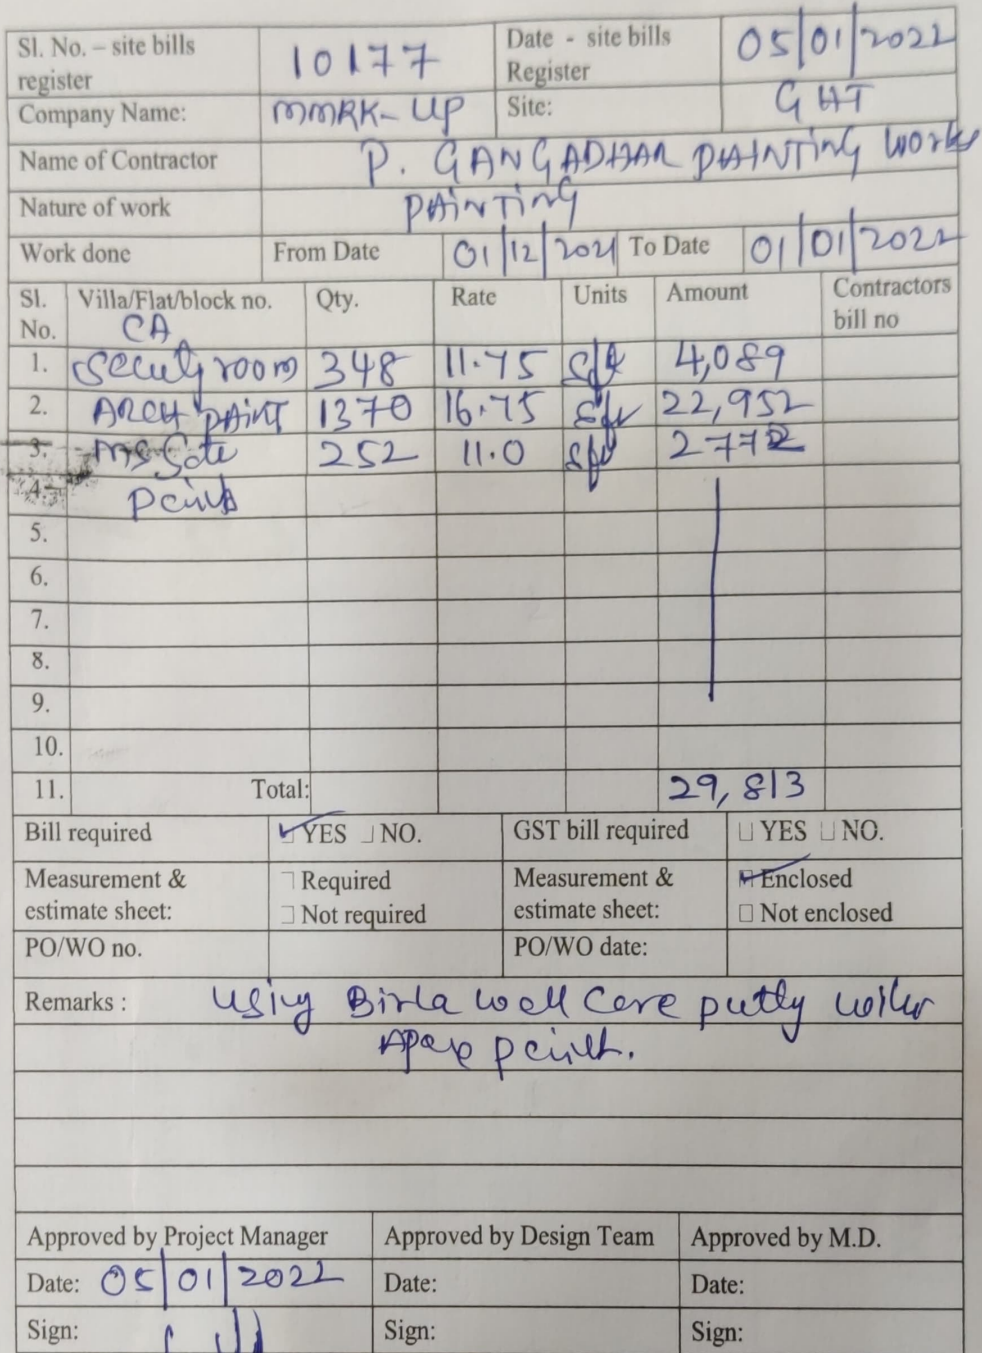 Sl. No. – site bills register 10177 Date - site bills Register 05/01/2022
Company Name: MMRK-UP Site: GHT
Name of Contractor P. GANGADHAR PAINTING WORKS
Nature of work PAINTING
Work done From Date 01/12/2021 To Date 01/01/2022
Sl. No. Villa/Flat/block no. Qty. Rate Units Amount Contractors bill no
CA
1. Secuty room 348 11.75 sft 4,089
2. ARCH PAINT 1370 16.75 sft 22,952
3. MS Gate 252 11.0 sft 2772
4. Paint
5.
6.
7.
8.
9.
10.
11. Total: 29,813
Bill required YES NO. GST bill required YES NO.
Measurement & estimate sheet: Required Not required Measurement & estimate sheet: Enclosed Not enclosed
PO/WO no. PO/WO date:
Remarks : Using Birla wall Care putty
paint.
Approved by Project Manager Approved by Design Team Approved by M.D.
Date: 05/01/2022 Date: Date:
Sign: Sign: Sign: